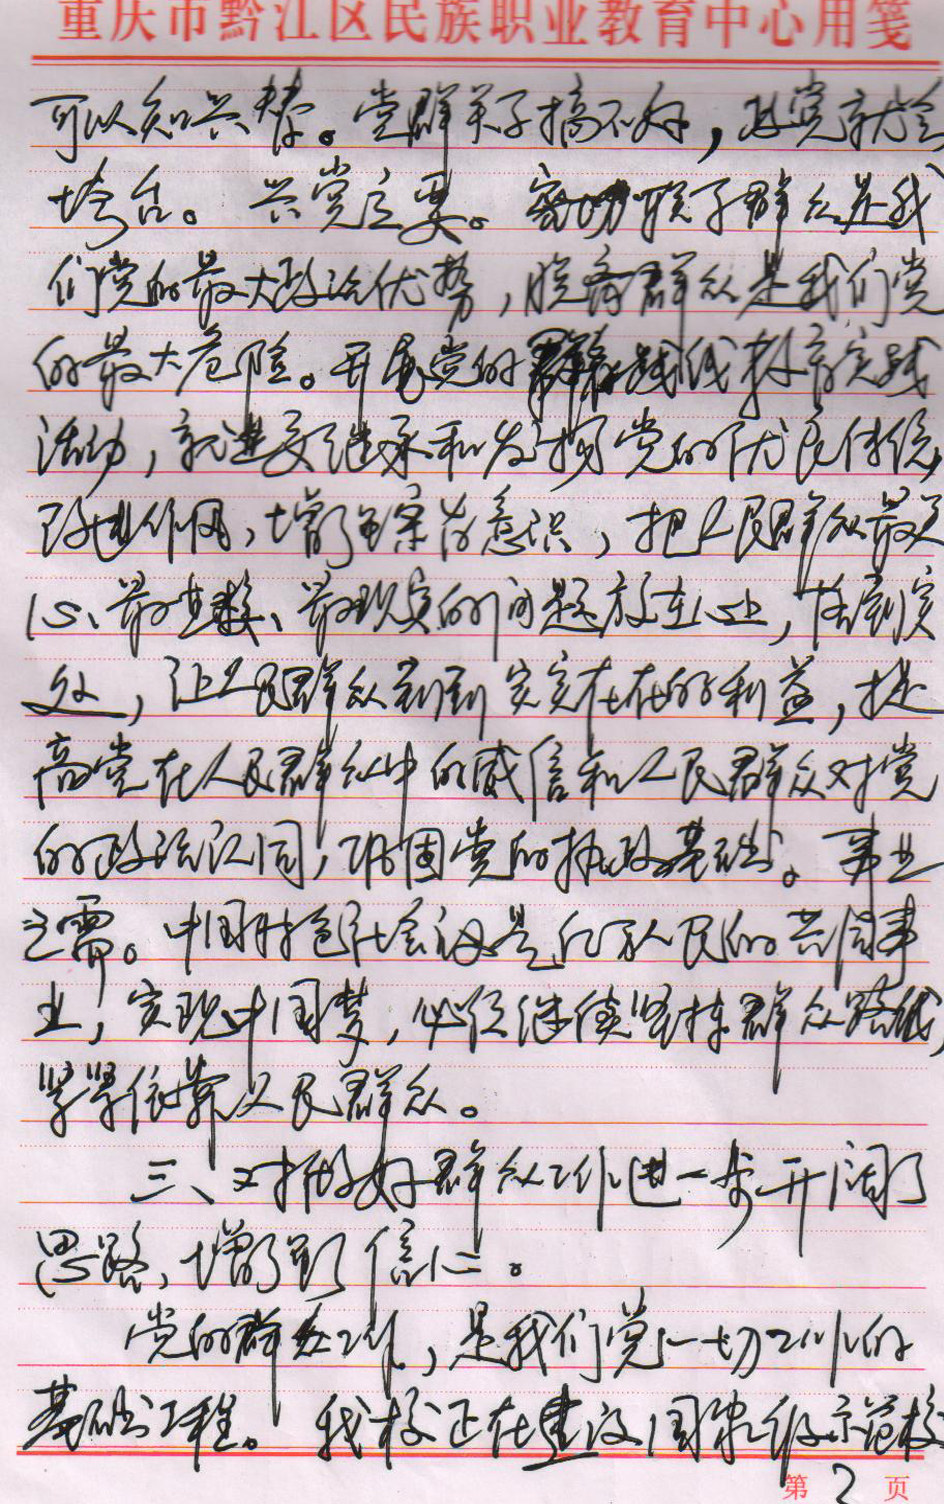 重庆市黔江区民族职业教育中心用笺
可以知兴替。党群关系搞不好，政党就会
垮台。兴党之要。密切联系群众是我
们党的最大政治优势，脱离群众是我们党
的最大危险。开展党的群众路线教育实践
活动，就是要继承和发扬党的优良传统，
改进作风，增强宗旨意识，把人民群众最关
心、最直接、最现实的问题放在心上，落到实
处，让人民群众得到实实在在的利益，提
高党在人民群众中的威信和人民群众对党
的政治认同，巩固党的执政基础。事业
之需。中国特色社会主义是亿万人民的共同事
业，实现中国梦，必须继续坚持群众路线，
紧紧依靠人民群众。
三、对做好群众工作进一步开阔了
思路，增强了信心。
党的群众工作，是我们党一切工作的
基础工程。我校正在建设国家级示范校
第2页